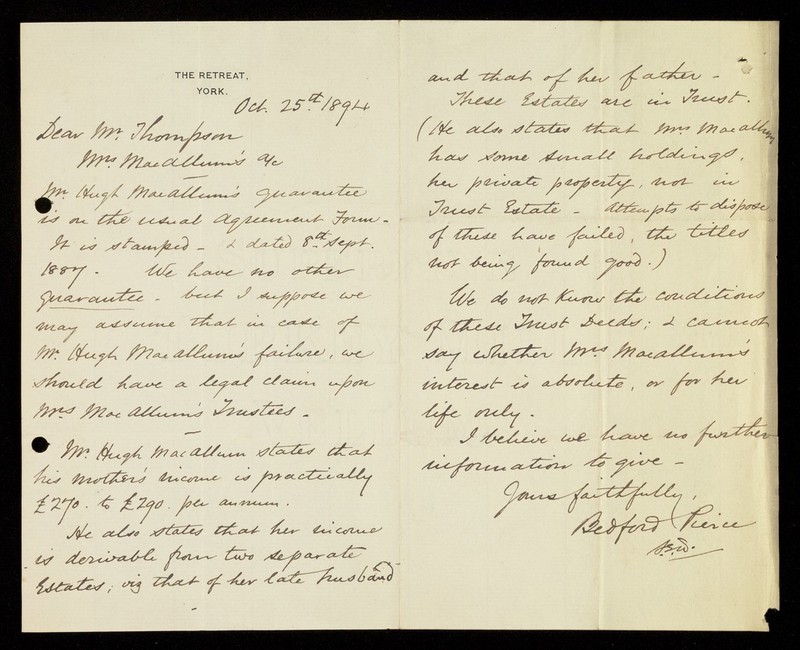 THE RETREAT,
YORK.
Oct. 25th 1894
Dear Mr Thompson
Mrs MacAllum's a/c
Mr Hugh MacAllum's guarantee
is on the usual Agreement Form -
It is stamped - & dated 8th Sept.
1887. We have no other
guarantee - but I suppose we
may assume that in case of
Mr Hugh MacAllum's failure, we
should have a legal claim upon
Mrs MacAllum's Trustees -
Mr Hugh MacAllum states that
his mother's income is practically
£270. to £290. per annum.
He also states that her income
is derivable from two separate
Estates; viz that of her late husband
and that of her father -
These Estates are in Trust.
(He also states that Mrs MacAllum
has some small holdings,
her private property, not in
Trust Estate - Attempts to dispose
of these have failed, the titles
not being found good.)
We do not know the conditions
of these Trust Deeds; & cannot
say whether Mrs Macallum's
interest is absolute, or for her
life only.
I believe we have no further
information to give -
Yours faithfully,
Bedford Pierce